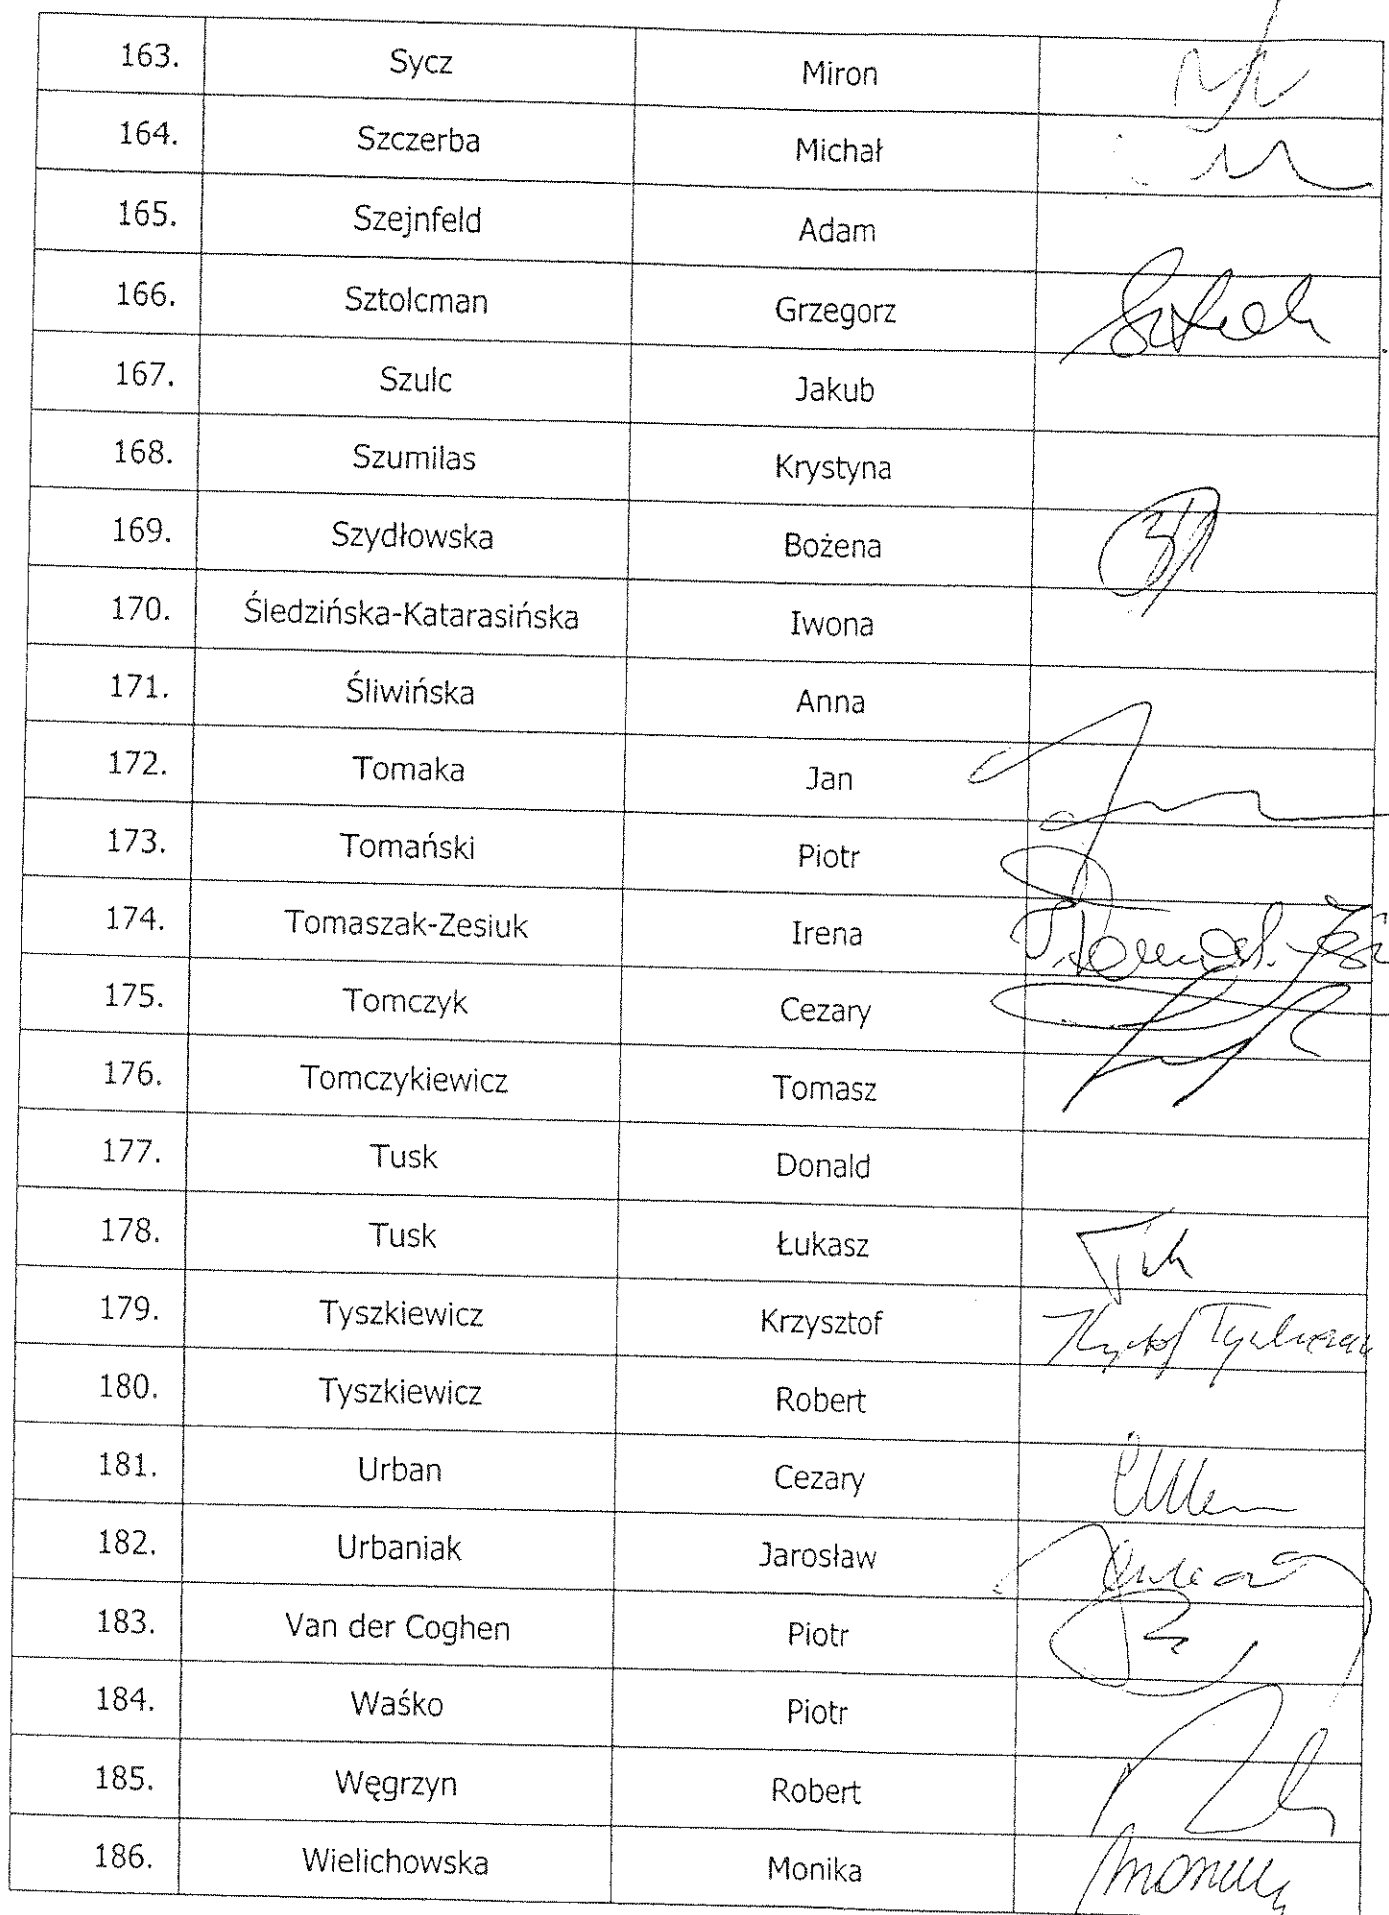 163. Sycz Miron
164. Szczerba Michał
165. Szejnfeld Adam
166. Sztolcman Grzegorz
167. Szulc Jakub
168. Szumilas Krystyna
169. Szydłowska Bożena
170. Śledzińska-Katarasińska Iwona
171. Śliwińska Anna
172. Tomaka Jan
173. Tomański Piotr
174. Tomaszak-Zesiuk Irena
175. Tomczyk Cezary
176. Tomczykiewicz Tomasz
177. Tusk Donald
178. Tusk Łukasz
179. Tyszkiewicz Krzysztof
180. Tyszkiewicz Robert
181. Urban Cezary
182. Urbaniak Jarosław
183. Van der Coghen Piotr
184. Waśko Piotr
185. Węgrzyn Robert
186. Wielichowska Monika